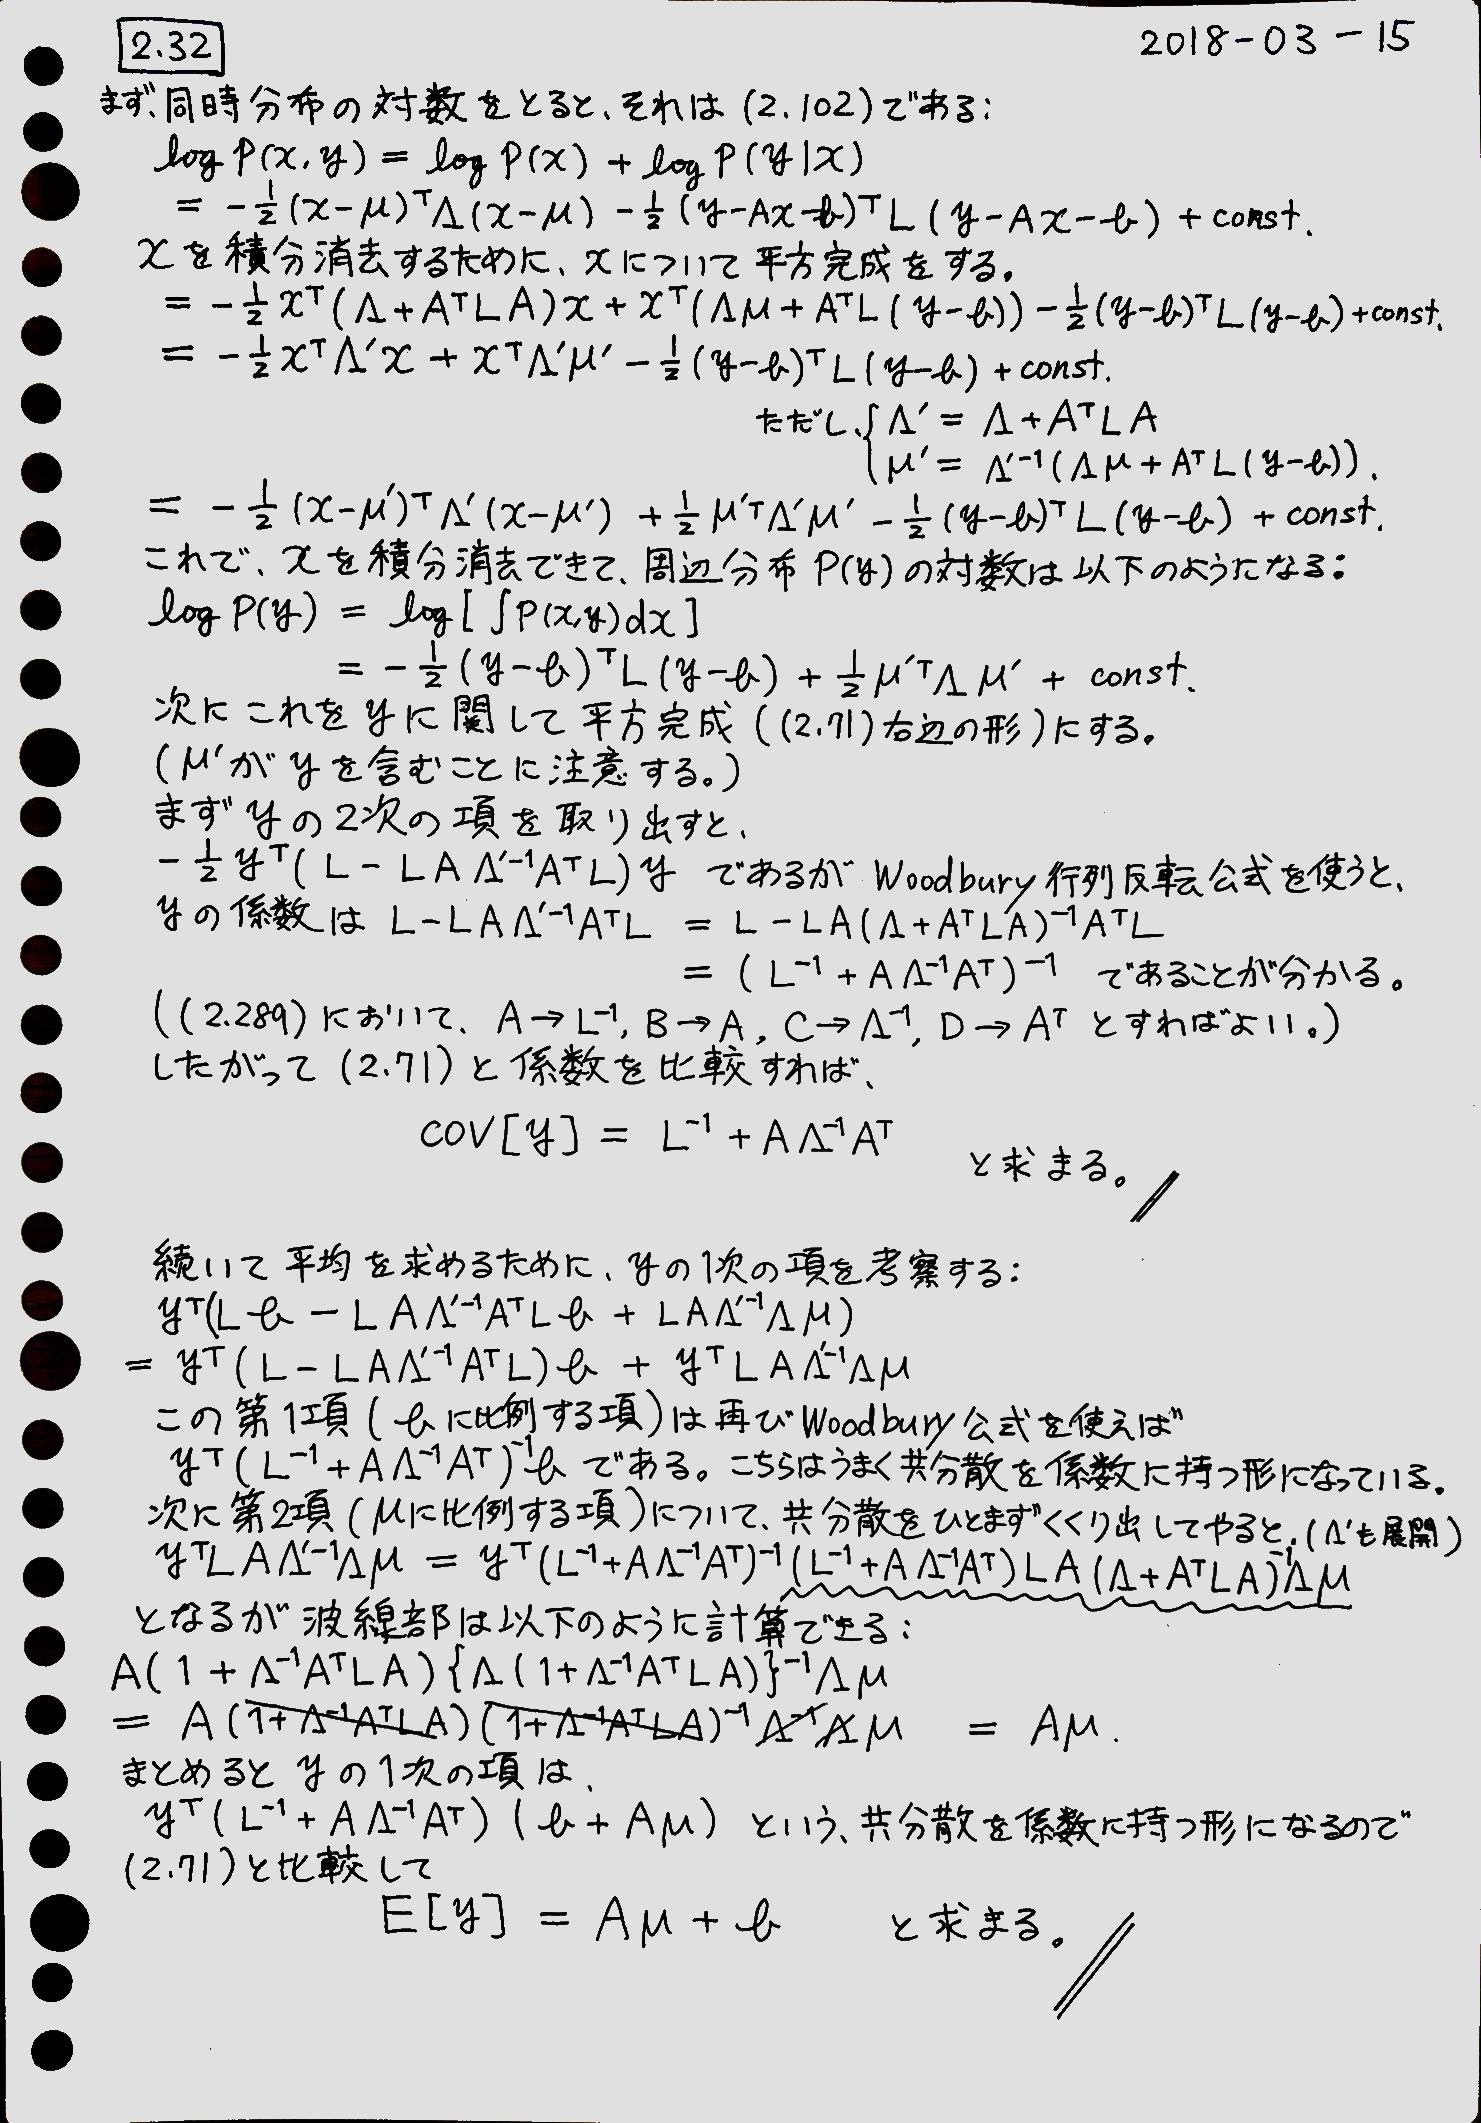 2.32 2018-03-15
まず、同時分布の対数をとると、それは (2.102)である:
log P(x,y) = log P(x) + log P(y|x)
= -½(x-μ)ᵀΛ(x-μ) -½(y-Ax-b)ᵀL(y-Ax-b) + const.
xを積分消去するために、xについて平方完成をする。
= -½xᵀ(Λ+AᵀLA)x + xᵀ(Λμ+AᵀL(y-b)) -½(y-b)ᵀL(y-b)+const.
= -½xᵀΛ'x + xᵀΛ'μ' -½(y-b)ᵀL(y-b) + const.
ただし、{Λ' = Λ+AᵀLA
μ' = Λ'⁻¹(Λμ+AᵀL(y-b)).
= -½(x-μ')ᵀΛ'(x-μ') +½μ'ᵀΛ'μ' -½(y-b)ᵀL(y-b) + const.
これで、xを積分消去できて、周辺分布P(y)の対数は以下のようになる:
log P(y) = log[∫P(x,y)dx]
= -½(y-b)ᵀL(y-b) + ½μ'ᵀΛμ' + const.
次にこれをyに関して平方完成((2.71)右辺の形)にする。
(μ'がyを含むことに注意する。)
まずyの2次の項を取り出すと、
-½yᵀ(L-LAΛ'⁻¹AᵀL)y であるが Woodbury行列反転公式を使うと、
yの係数は L-LAΛ'⁻¹AᵀL = L-LA(Λ+AᵀLA)⁻¹AᵀL
= (L⁻¹+AΛ⁻¹Aᵀ)⁻¹ であることが分かる。
((2.289)において、A→L⁻¹, B→A, C→Λ⁻¹, D→Aᵀ とすればよい。)
したがって(2.71)と係数を比較すれば、
cov[y] = L⁻¹+AΛ⁻¹Aᵀ
と求まる。//
続いて平均を求めるために、yの1次の項を考察する:
yᵀ(Lb - LAΛ'⁻¹AᵀLb + LAΛ'⁻¹Λμ)
= yᵀ(L-LAΛ'⁻¹AᵀL)b + yᵀLAΛ'⁻¹Λμ
この第1項(bに比例する項)は再びWoodbury公式を使えば
yᵀ(L⁻¹+AΛ⁻¹Aᵀ)⁻¹b である。こちらはうまく共分散を係数に持つ形になっている。
次に第2項(μに比例する項)について、共分散をひとまずくくり出してやると、(Λ'も展開)
yᵀLAΛ'⁻¹Λμ = yᵀ(L⁻¹+AΛ⁻¹Aᵀ)⁻¹(L⁻¹+AΛ⁻¹Aᵀ)LA(Λ+AᵀLA)⁻¹Λμ
となるが波線部は以下のように計算できる:
A(1+Λ⁻¹AᵀLA){Λ(1+Λ⁻¹AᵀLA)}⁻¹Λμ
= A(1+Λ⁻¹AᵀLA)(1+Λ⁻¹AᵀLA)⁻¹Λ⁻¹Λμ = Aμ.
まとめるとyの1次の項は、
yᵀ(L⁻¹+AΛ⁻¹Aᵀ)(b+Aμ) という、共分散を係数に持つ形になるので
(2.71)と比較して
E[y] = Aμ+b と求まる。//